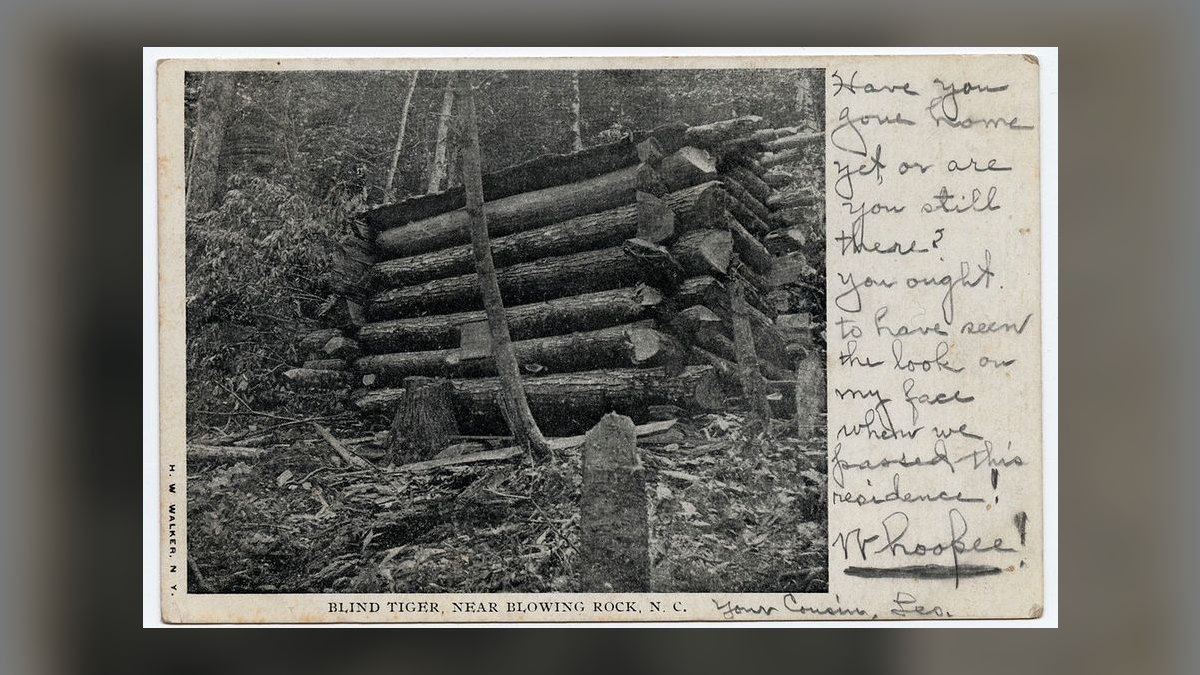 Have you
gone home
yet, or are
you still
there?
You ought
to have seen
the look on
my face
when we
passed this
residence!
Whoopee!
H. W. WALKER, N. Y.
BLIND TIGER, NEAR BLOWING ROCK, N. C.
Your Cousin, Leo.